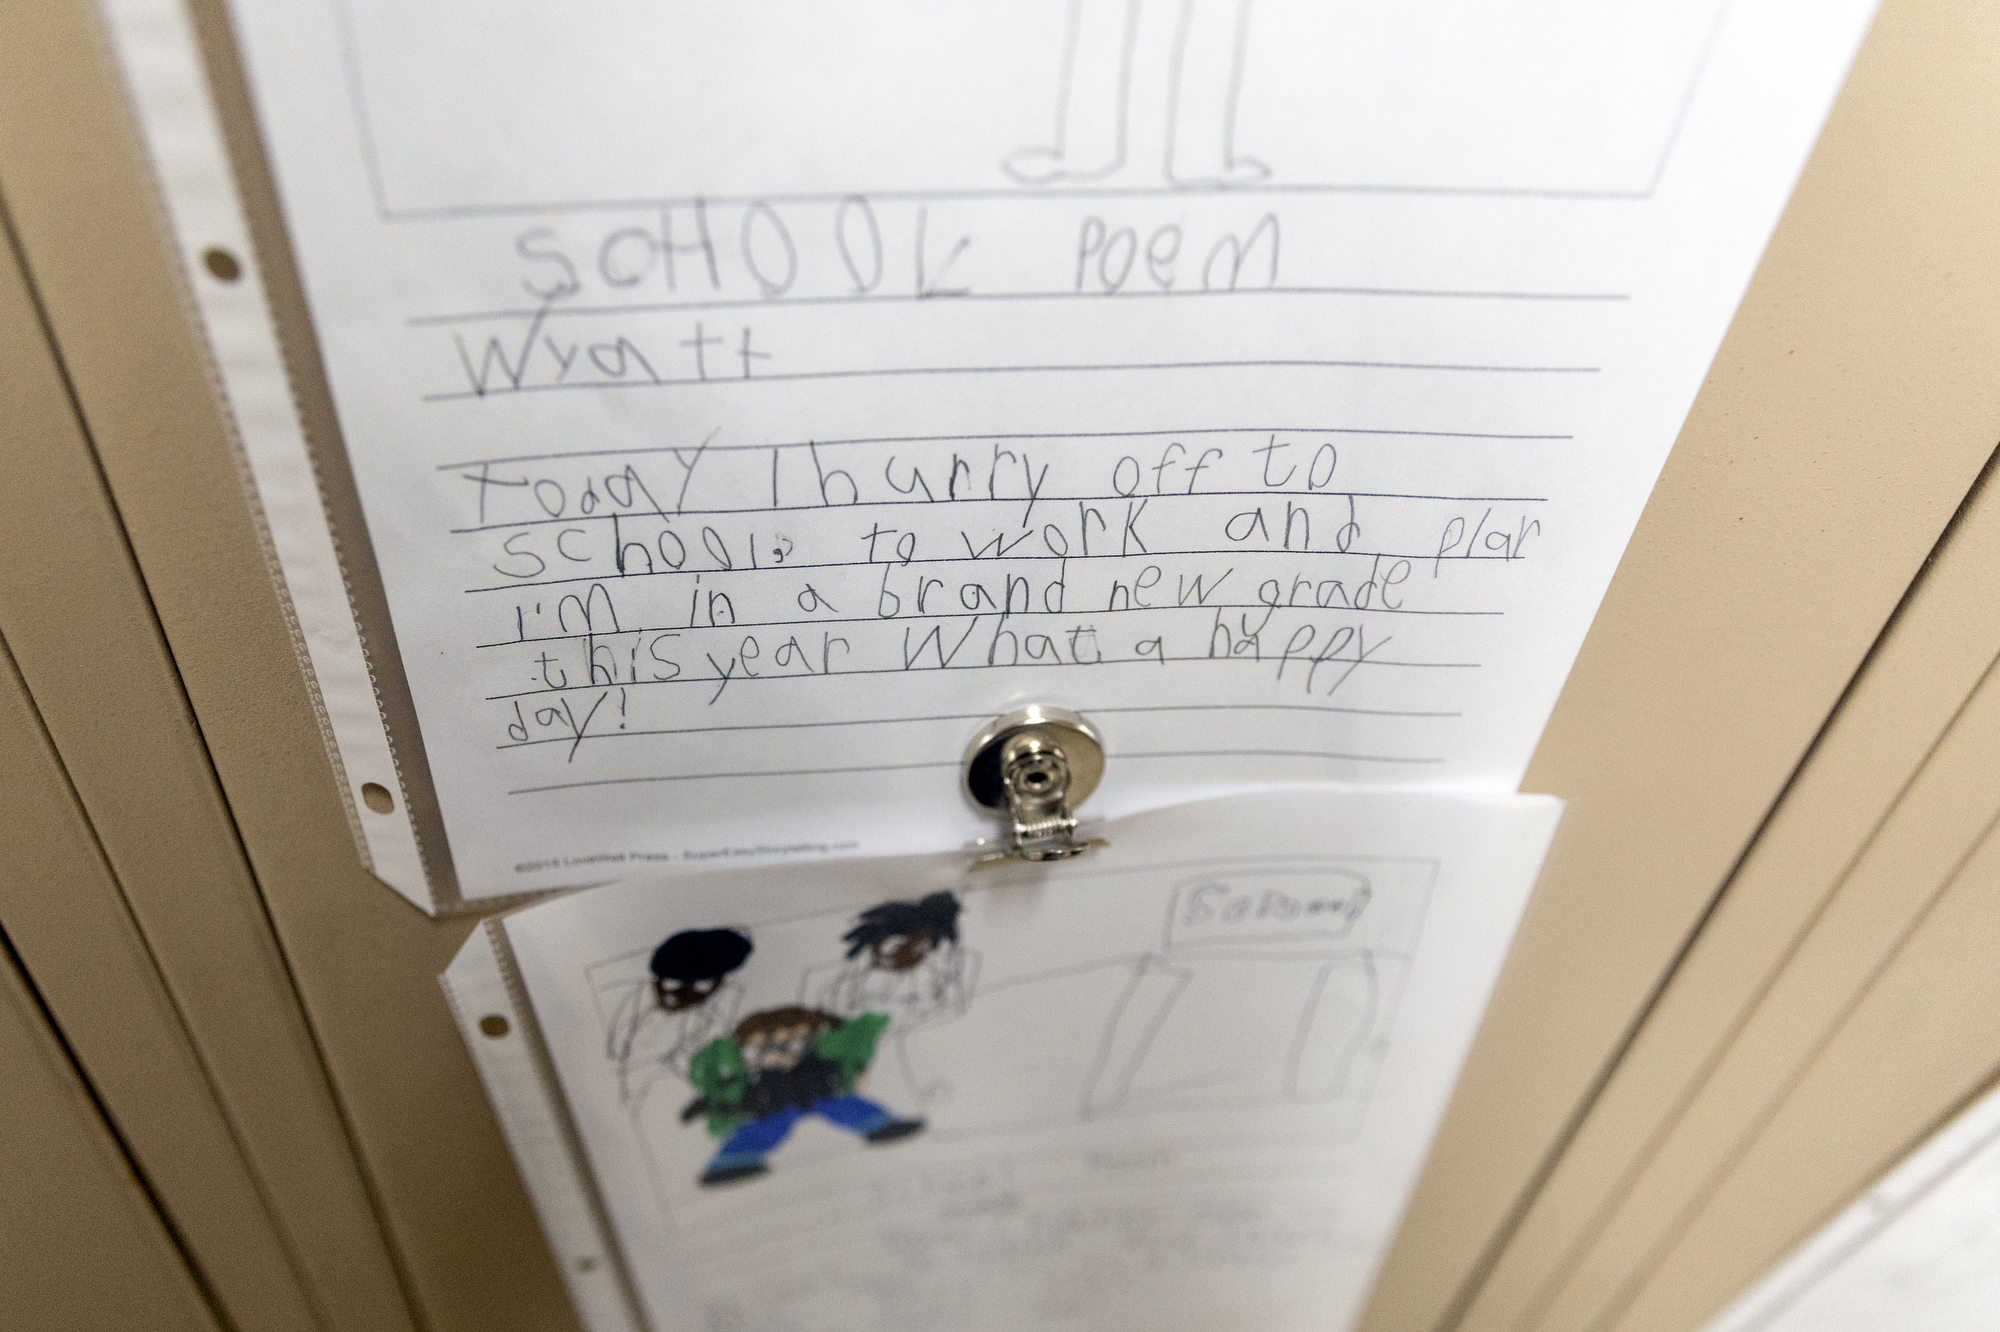 SCHOOL Poem
Wyatt
Today I hurry off to
school, to work and play
I'm in a brand new grade
this year What a happy
day!
©2015 LoveWell Press - SuperEasyStorytelling.com
School
School Poem